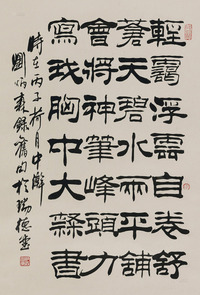 輕靄浮雲自卷舒
蒼天碧水兩平鋪
會將神筆峰頭力
寫我胸中大隸書
時在丙子荷月中澣
劉炳森錄舊句於瑞德壺